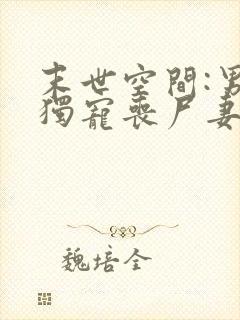 末世空間:男
獨寵喪尸妻
魏培全